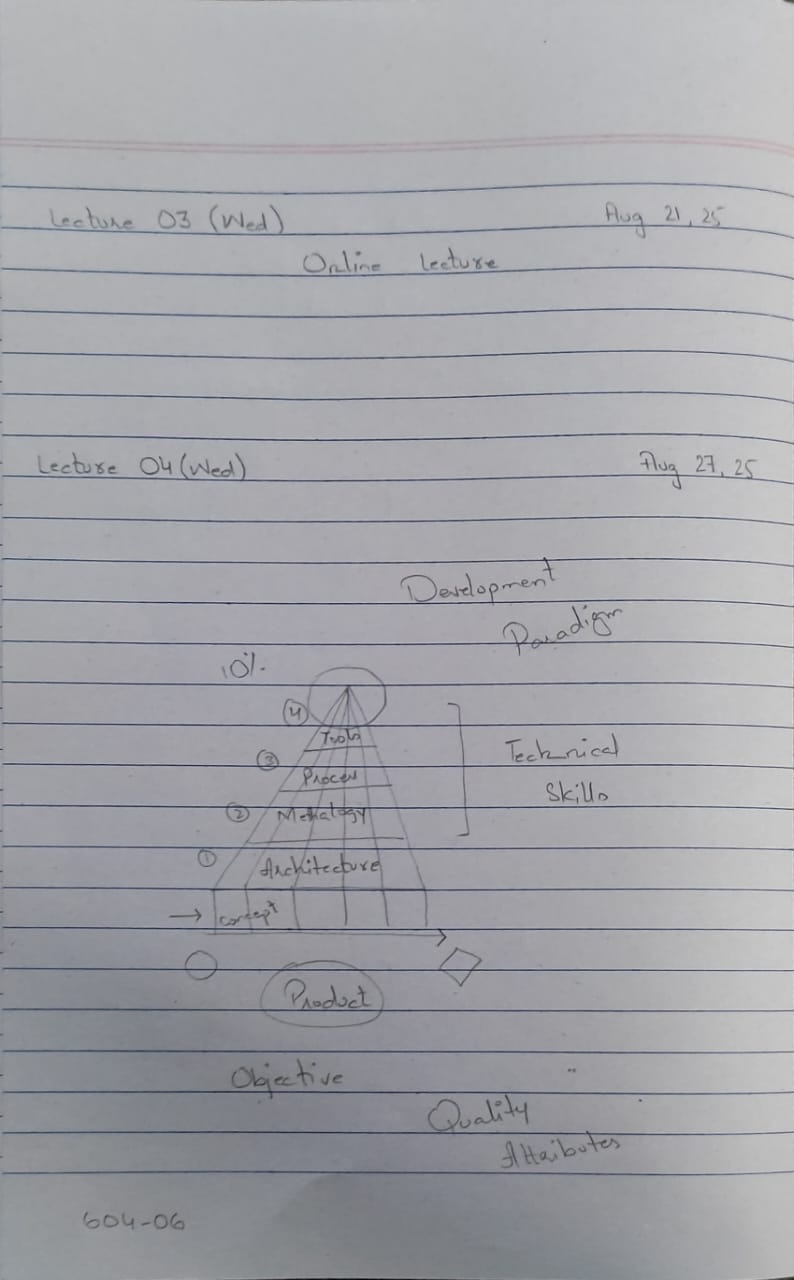 Lecture 03 (Wed) Aug 21, 25
Online Lecture
Lecture 04 (Wed) Aug 27, 25
Development
Paradigm
10%.
④
Tools
③
Process
Technical
Skills
②
Methalogy
①
Architecture
→ concept
Product
Objective
Quality
Attributes
604-06